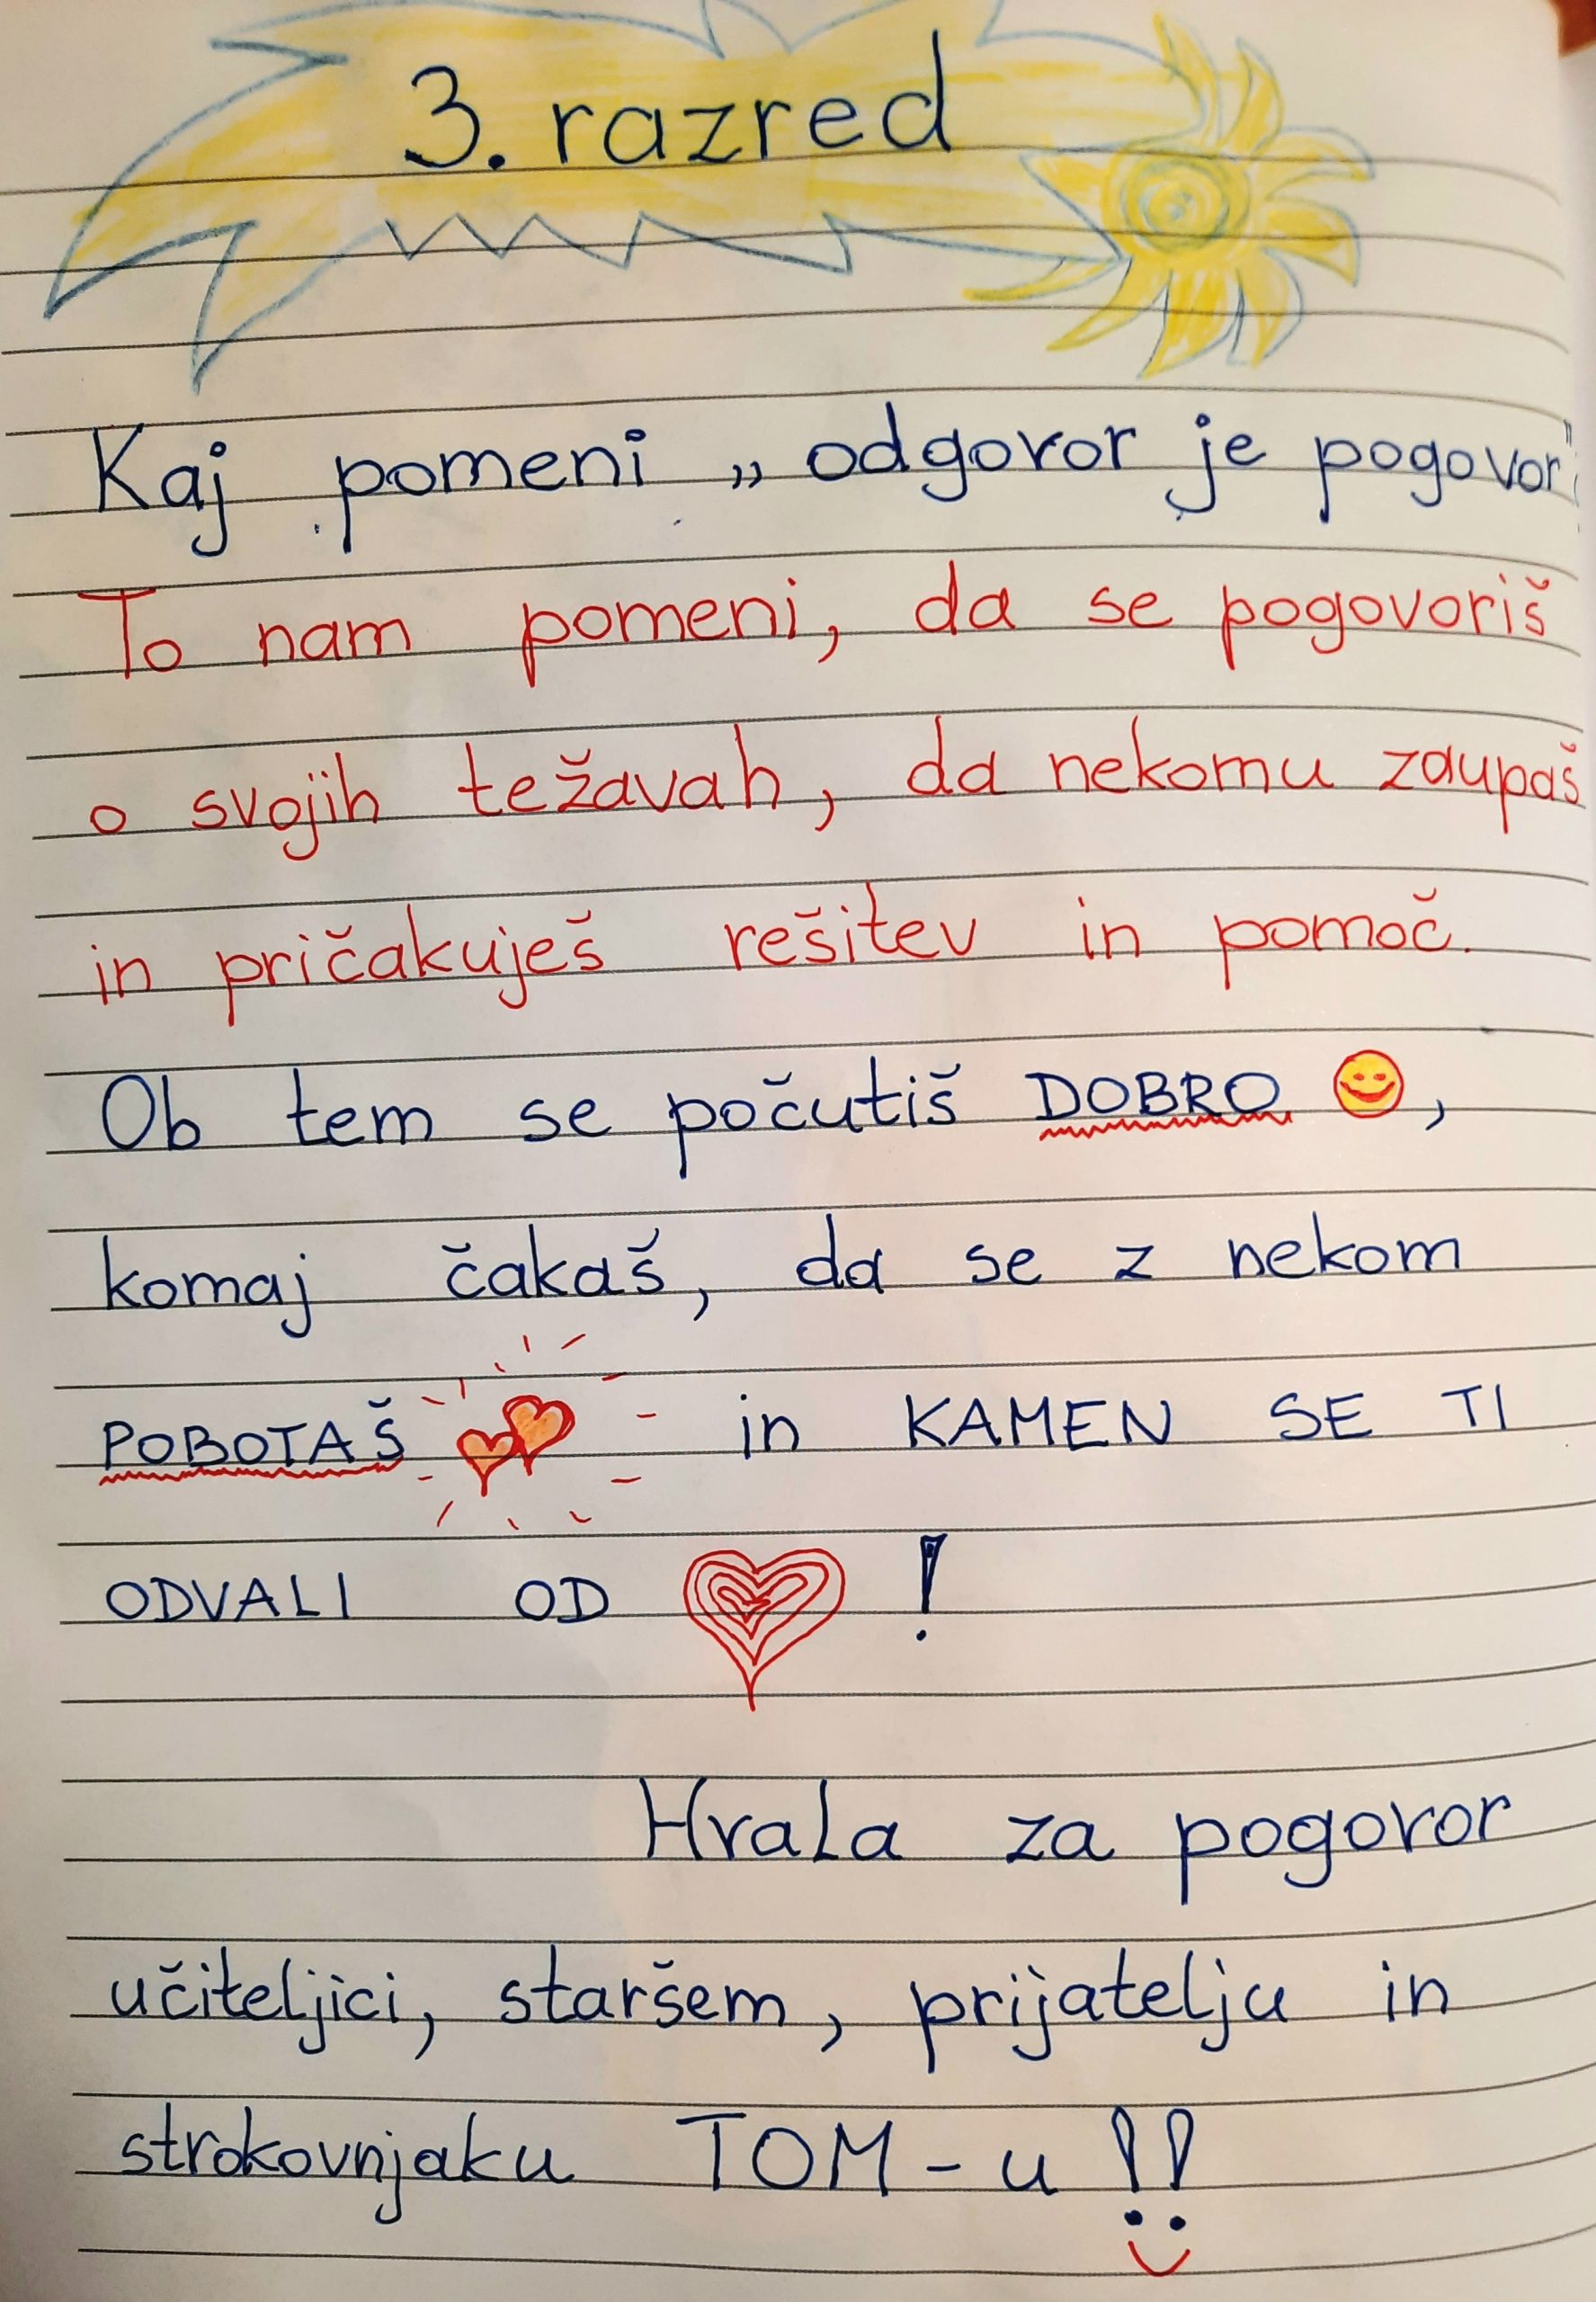 3. razred
Kaj pomeni „odgovor je pogovor"
To nam pomeni, da se pogovoriš
o svojih težavah, da nekomu zaupaš
in pričakuješ rešitev in pomoč.
Ob tem se počutiš DOBRO 😊,
komaj čakaš, da se z nekom
POBOTAŠ in KAMEN SE TI
ODVALI OD !
Hvala za pogovor
učiteljici, staršem, prijatelju in
strokovnjaku TOM-u !!